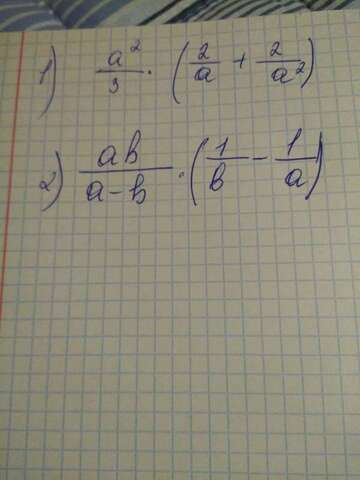 1) a²/3 · (2/a + 2/a²)
2) ab/(a-b) · (1/b - 1/a)